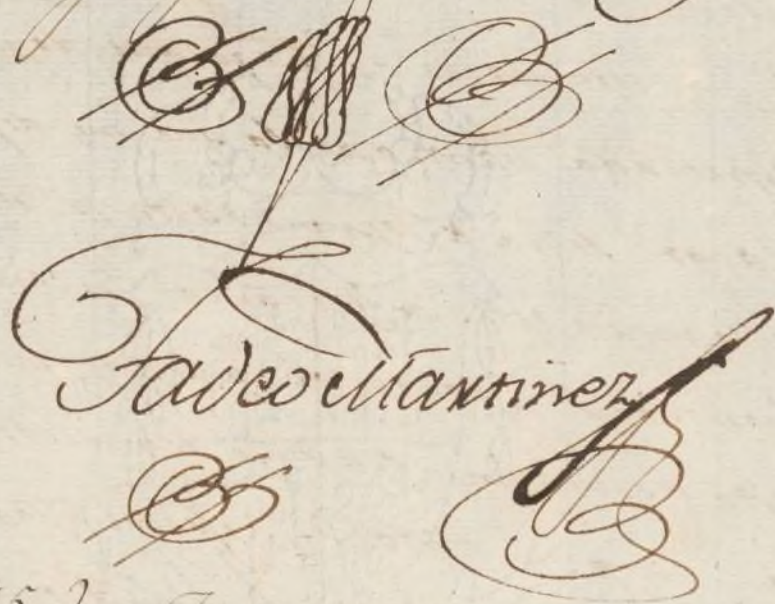 Tadeo Martinez